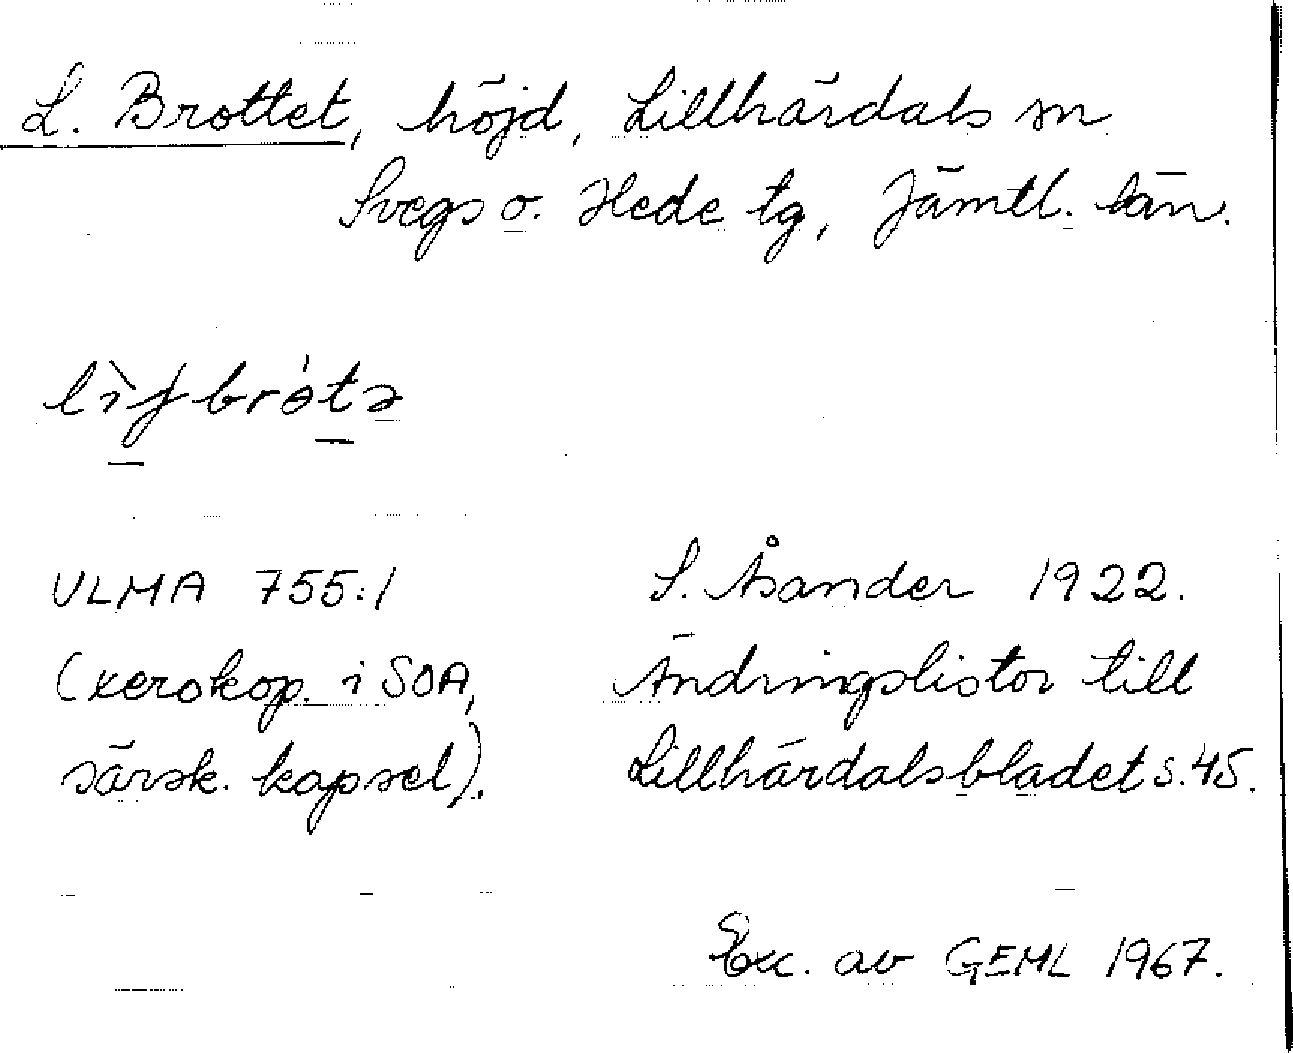 L. Brottet, höjd, Lillhärdals sn
Svegs o. Hede tg, Jämtl. län.
ULMA 755:1
(xerokop. i SOA,
särsk. kapsel).
S. Åsander 1922.
Ändringslistor till
Lillhärdalsbladet s. 45.
Exc. av GEML 1967.